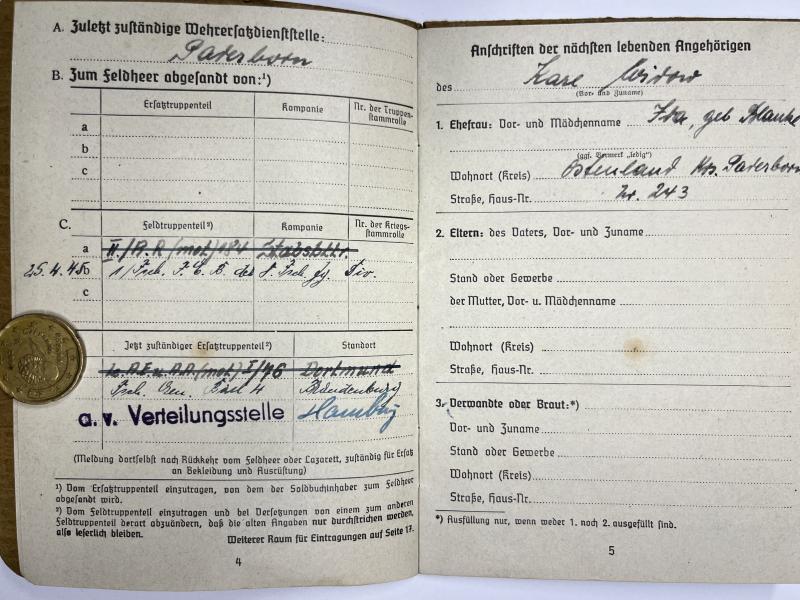 A. Zuletzt zuständige Wehrersatzdienststelle:
Paderborn
B. Zum Feldheer abgesandt von:¹)
Ersatztruppenteil Kompanie Nr. der Truppen-
stammrolle
a
b
c
C. Feldtruppenteil²) Kompanie Nr. der Kriegs-
stammrolle
a II./A.R. (mot) 184 Stabsbttr.
25.4.45 b 1/Fsch. F.E.B. der 8. Fsch. Jg. Div.
c
Jetzt zuständiger Ersatztruppenteil²) Standort
(mot) I/76 Dortmund
Fsch. Gen. Batl 4 Brandenburg
a. v. Verteilungsstelle Hamburg
(Meldung dortselbst nach Rückkehr vom Feldheer oder Lazarett, zuständig für Ersatz
an Bekleidung und Ausrüstung)
¹) Vom Ersatztruppenteil einzutragen, von dem der Soldbuchinhaber zum Feldheer
abgesandt wird.
²) Vom Feldtruppenteil einzutragen und bei Versetzungen von einem zum anderen
Feldtruppenteil derart abzuändern, daß die alten Angaben nur durchstrichen werden,
also leserlich bleiben.
Weiterer Raum für Eintragungen auf Seite 17.
4
Anschriften der nächsten lebenden Angehörigen
des Karl
(Vor- und Zuname)
1. Ehefrau: Vor- und Mädchenname Ida, geb Blanke
(ggf. Vermerk „ledig")
Wohnort (Kreis) Ostenland Krs. Paderborn
Straße, Haus-Nr. Nr. 243
2. Eltern: des Vaters, Vor- und Zuname
Stand oder Gewerbe
der Mutter, Vor- u. Mädchenname
Wohnort (Kreis)
Straße, Haus-Nr.
3. Verwandte oder Braut:*)
Vor- und Zuname
Stand oder Gewerbe
Wohnort (Kreis)
Straße, Haus-Nr.
*) Ausfüllung nur, wenn weder 1. noch 2. ausgefüllt sind.
5